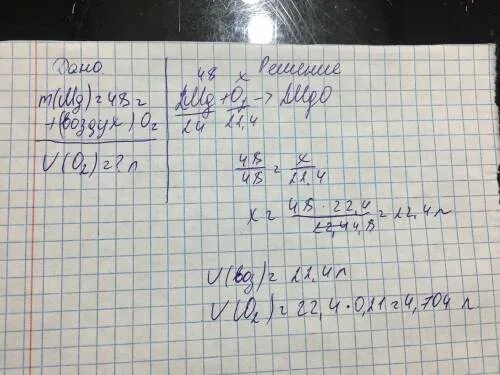 Дано
m(Mg) = 48 г
+(воздух) O₂
V(O₂) = ? л
Решение
48 x
2Mg + O₂ → 2MgO
24 22,4
48/48 = x/22,4
x = 48 · 22,4 / 48 = 22,4 л
V(воз) = 22,4 л
V(O₂) = 22,4 · 0,21 = 4,704 л